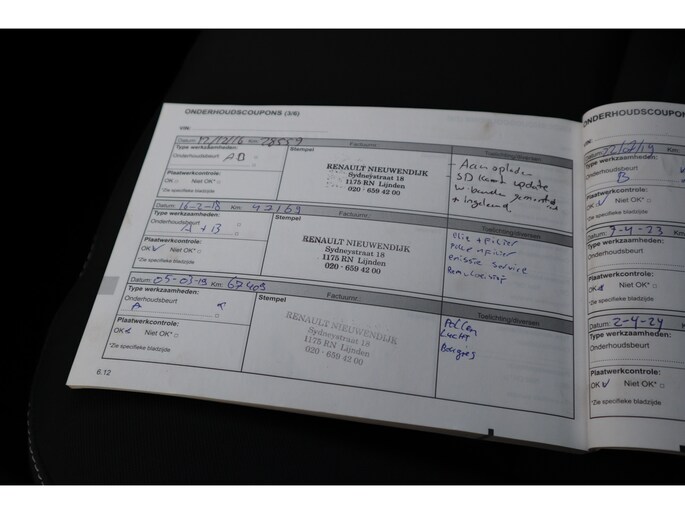 ONDERHOUDSCOUPONS (3/6)
VIN:
Datum: 12/12/16 Km: 28559 Factuurnr.: Toelichting/diversen
Type werkzaamheden: Stempel
Onderhoudsbeurt AD
Plaatwerkcontrole:
OK Niet OK*
*Zie specifieke bladzijde
RENAULT NIEUWENDIJK
Sydneystraat 18
1175 RN Lijnden
020 · 659 42 00
- Aan opladen
- SD kaart update
w. banden gemonteerd
+ ingeleend
Datum: 16-2-18 Km: 47169 Factuurnr.: Toelichting/diversen
Type werkzaamheden: Stempel
Onderhoudsbeurt A + B
Plaatwerkcontrole:
OK Niet OK*
*Zie specifieke bladzijde
RENAULT NIEUWENDIJK
Sydneystraat 18
1175 RN Lijnden
020 · 659 42 00
olie + filter
pollenfilter
emissie service
Remvloeistof
Datum: 05-03-19 Km: 67409 Factuurnr.: Toelichting/diversen
Type werkzaamheden: Stempel
Onderhoudsbeurt
A
Plaatwerkcontrole:
OK Niet OK*
*Zie specifieke bladzijde
RENAULT NIEUWENDIJK
Sydneystraat 18
1175 RN Lijnden
020 · 659 42 00
Pollen
Lucht
Bougies
6.12
ONDERHOUDSCOUPONS
Datum:
Type werkzaamheden:
Onderhoudsbeurt
B
Plaatwerkcontrole:
OK Niet OK*
*Zie specifieke bladzijde
Datum: 3-4-23
Type werkzaamheden:
Onderhoudsbeurt
Plaatwerkcontrole:
OK Niet OK*
*Zie specifieke bladzijde
Datum: 2-4-24
Type werkzaamheden:
Onderhoudsbeurt
Plaatwerkcontrole:
OK Niet OK*
*Zie specifieke bladzijde